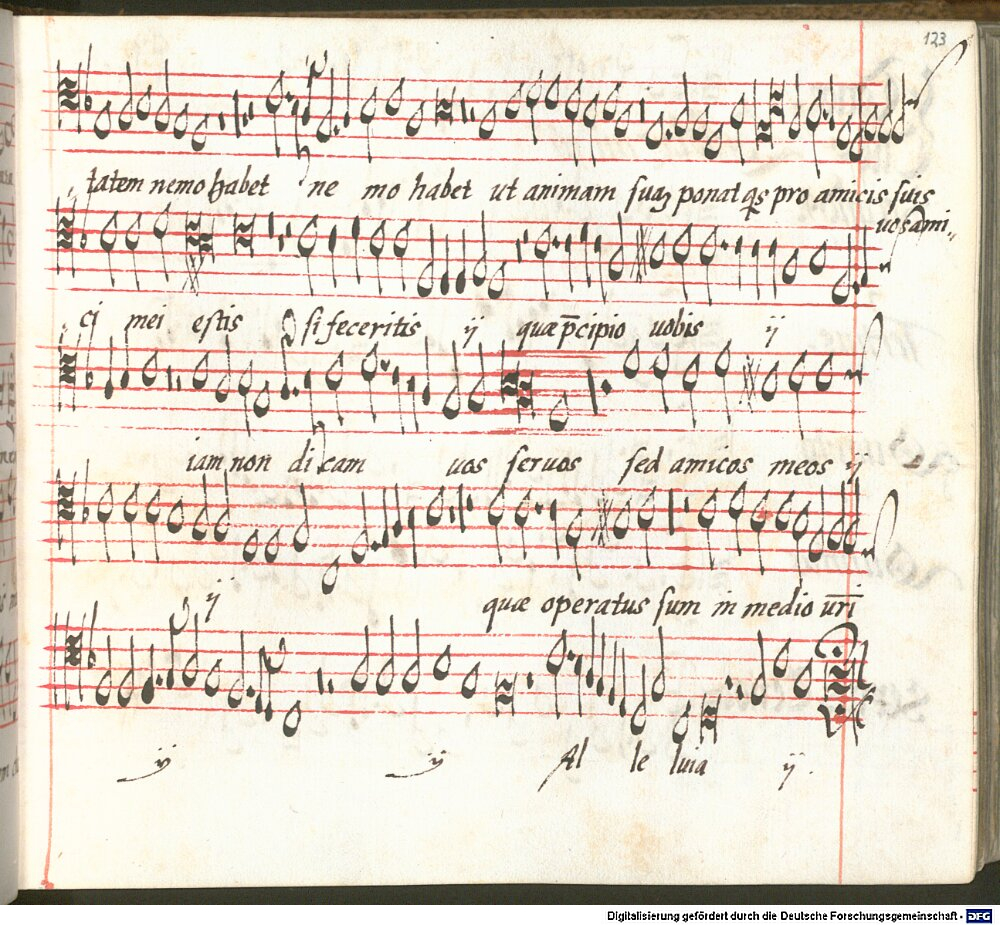 123
tatem nemo habet ne mo habet ut animam suaʒ ponat qs pro amicis suis
uos ami„
cj mei estis si feceritis ij quæ p̄cipio uobis ij
iam non di cam uos seruos sed amicos meos ij
ij quæ operatus sum in medio ur̄i
ij ij Al le luia ij.
Digitalisierung gefördert durch die Deutsche Forschungsgemeinschaft - DFG